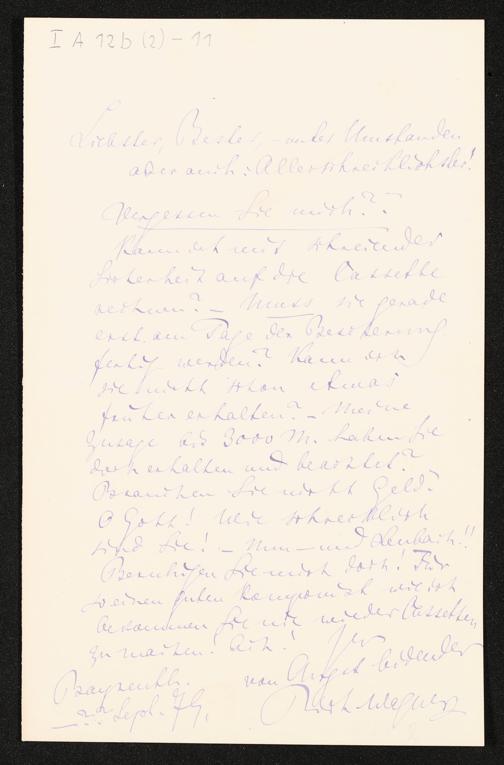 I A 12b (2) - 11
Liebster, Bester, – unter Umständen
aber auch: Allerschrecklichster!
Vergessen Sie mich??
Kann ich mit schreiender
Sicherheit auf die Cassette
rechnen? – Muss sie gerade
erst am Tage der Bescherung
fertig werden? Kann ich
sie nicht schon etwas
früher erhalten? – Meine
Zusage bis 3000 M. haben Sie
doch erhalten und beachtet?
Brauchen Sie nicht Geld?
O Gott! Wie schrecklich
sind Sie! – Nun – und Lenbach!!
Beruhigen Sie mich doch! Für
einen guten Komponist wie ich
bekommen Sie nie wieder Cassetten
zu machen. Ach! Ihr
von Angst bebender
Bayreuth.
Sept. 79.
Rich. Wagner